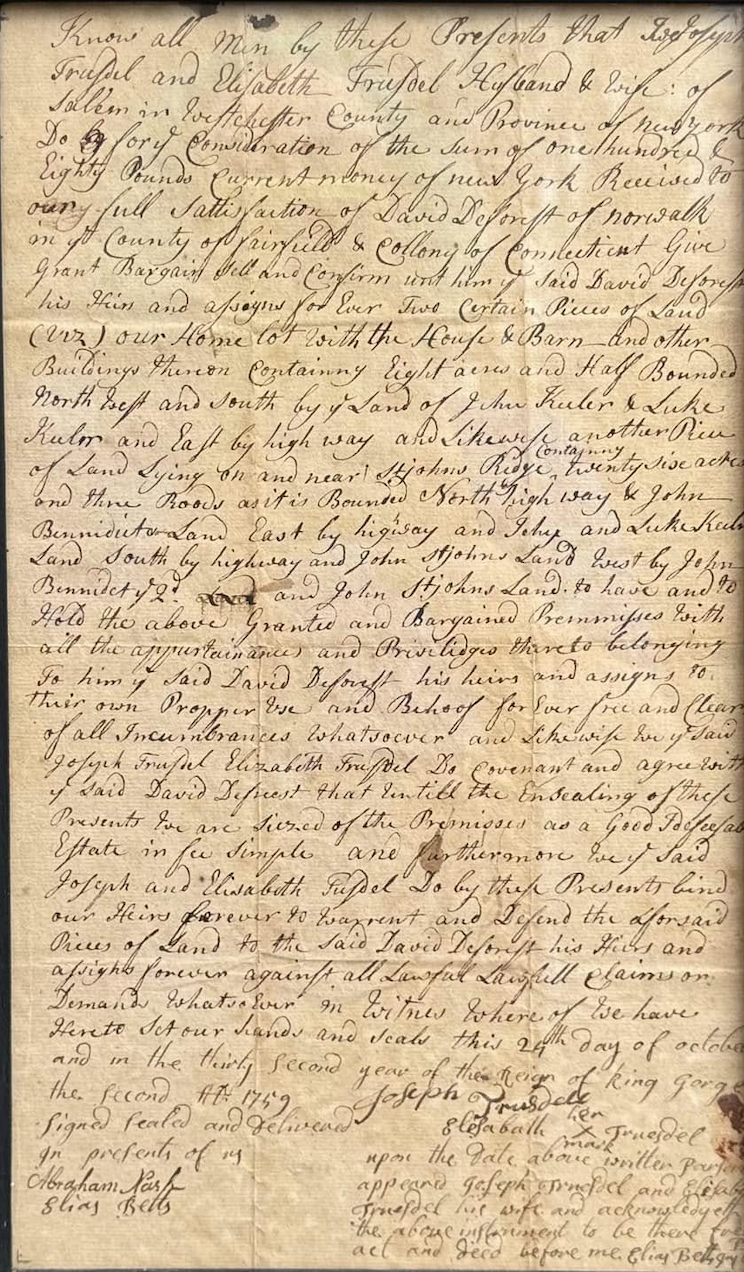 Know all Men by these Presents that We Joseph
Trusdel and Elisabeth Trusdel Husband & Wife: of
Salem in Westchester County and Province of new york
Do for yᵉ Consideration of the Sum of one hundred &
Eighty Pounds Current money of new York Received to
our full Sattisfaction of David Deforest of norwalk
in yᵉ County of fairfield & Collony of Connecticut Give
Grant Bargain Sell and Confirm unt him yᵉ Said David Deforest
his Heirs and assigns for Ever Two Certain Pieces of Land
(viz) our Home lot with the House & Barn and other
Buildings thereon Containny Eight acres and Half Bounded
North West and South by yᵉ Land of John Keeler & Luke
Keelor and East by high way and Likewise another Piece
of Land Lying on and near Stjohns Ridge Containny twenty six acres
and three Roods as it is Bounded North high way & John
Bennidict Land East by higway and John and Luke Keeler
Land South by highway and John Stjohns Land West by John
Bennidet yᵉ 2ᵈ and John Stjohns Land. to have and to
Hold the above Granted and Bargained Premmisses with
all the appurtainances and Privilidges thereto belonging
To him yᵉ Said David Deforest his heirs and assigns to
their own Propper Use and Behoof for Ever free and Clear
of all Incumbrances Whatsoever and Likewise We yᵉ Said
Joseph Trusdel Elizabeth Trusdel Do Covenant and agree with
yᵉ Said David Defreest that Untill the Ensealing of these
Presents We are Siezed of the Premisses as a Good
Estate in fee Simple and furthermore We yᵉ Said
Joseph and Elisabeth Tusdel Do by these Presents bind
our Heirs forever to Warrent and Defend the aforsaid
Pieces of Land to the Said David Deforest his Heirs and
assighs forever against all Lawful Lawfull Claims or
Demands Whatsoever in Witness Where of We have
Hereto Set our hands and Seals this 24ᵗʰ day of octobe
and in the thirty Second year of the Reign of King Gorge
the Second AD 1759
Joseph Trusdell
Signed Sealed and Delivered
Elesabath her X mark Truesdel
in presents of us
Abraham Nash
Elias Betts
upon the Date above written Parson
appeard Joseph Truesdel and Elisab
Truesdel his wife and acknowledged
the above instrument to be there free
act and Deed before me Elias Betts